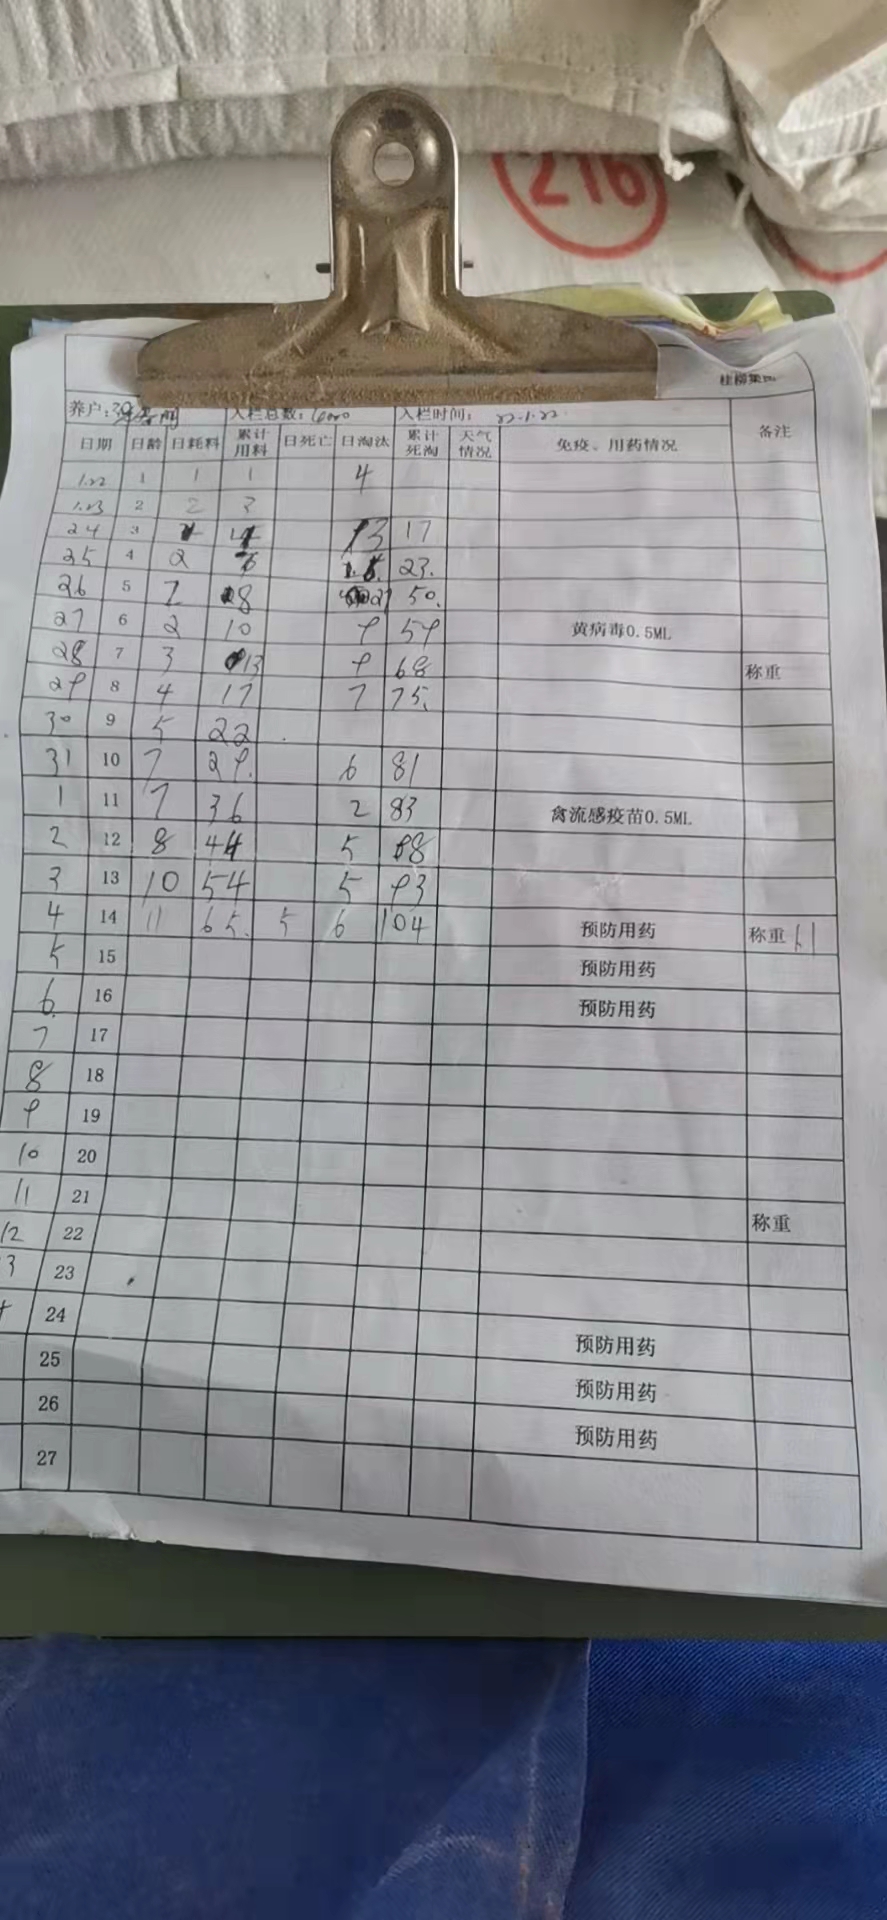 216
桂柳集团
养户: 入栏总数: 6000 入栏时间: 22.1.22
日期 日龄 日耗料 累计用料 日死亡 日淘汰 累计死淘 天气情况 免疫、用药情况 备注
1.22 1 1 1 4
1.23 2 2 3
24 3 13 17
25 4 2 23.
26 5 2 8 27 50.
27 6 2 10 9 59 黄病毒0.5ML
28 7 3 13 9 68 称重
29 8 4 17 7 75.
30 9 5 22
31 10 7 29. 6 81
1 11 7 36 2 83 禽流感疫苗0.5ML
2 12 8 44 5 88
3 13 10 54 5 93
4 14 11 65. 5 6 104 预防用药 称重 61
5 15 预防用药
6. 16 预防用药
7 17
8 18
9 19
10 20
11 21
12 22 称重
3 23
24
25 预防用药
26 预防用药
27 预防用药